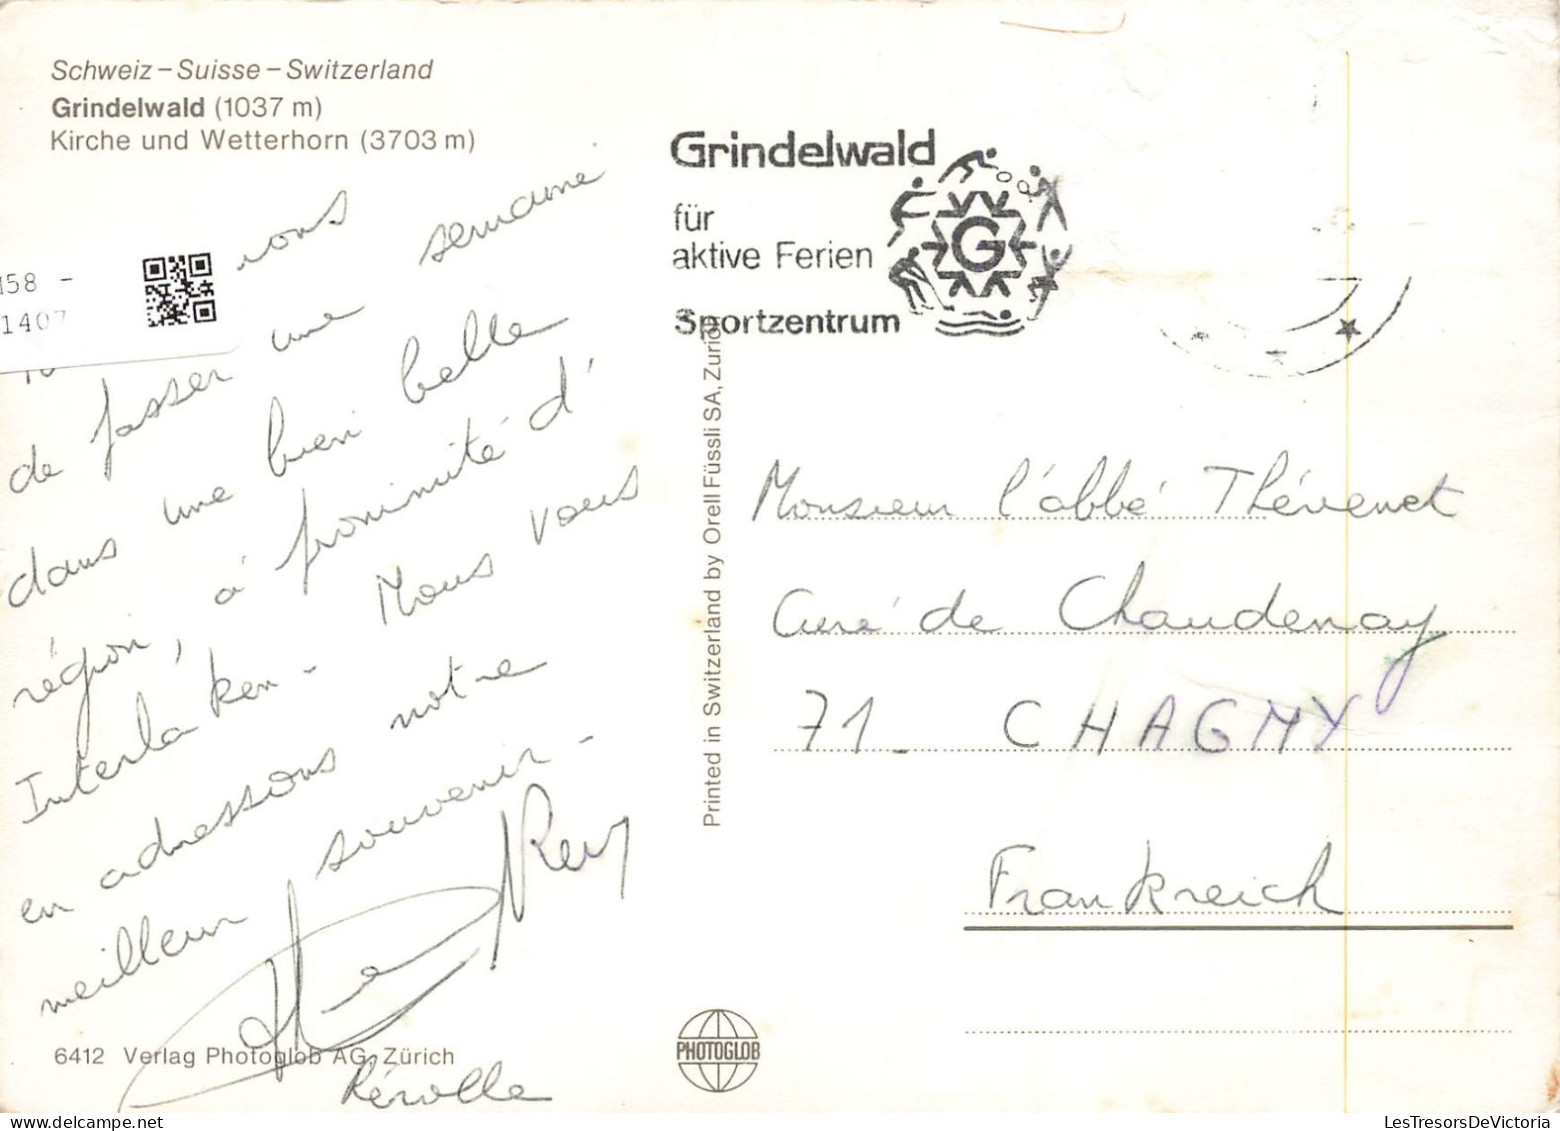 Schweiz – Suisse – Switzerland
Grindelwald (1037 m)
Kirche und Wetterhorn (3703 m)
58 -
1407
de passer une semaine
dans une bien belle
région, à proximité d'
Interlaken - Nous vous
en adressons notre
meilleur souvenir -
6412 Verlag Photoglob AG, Zürich
Printed in Switzerland by Orell Füssli SA, Zurich
PHOTOGLOB
Grindelwald
für
aktive Ferien
Sportzentrum
G
Monsieur l'abbé Thévenet
Curé de Chaudenay
71_ CHAGNY
Frankreich
LesTresorsDeVictoria